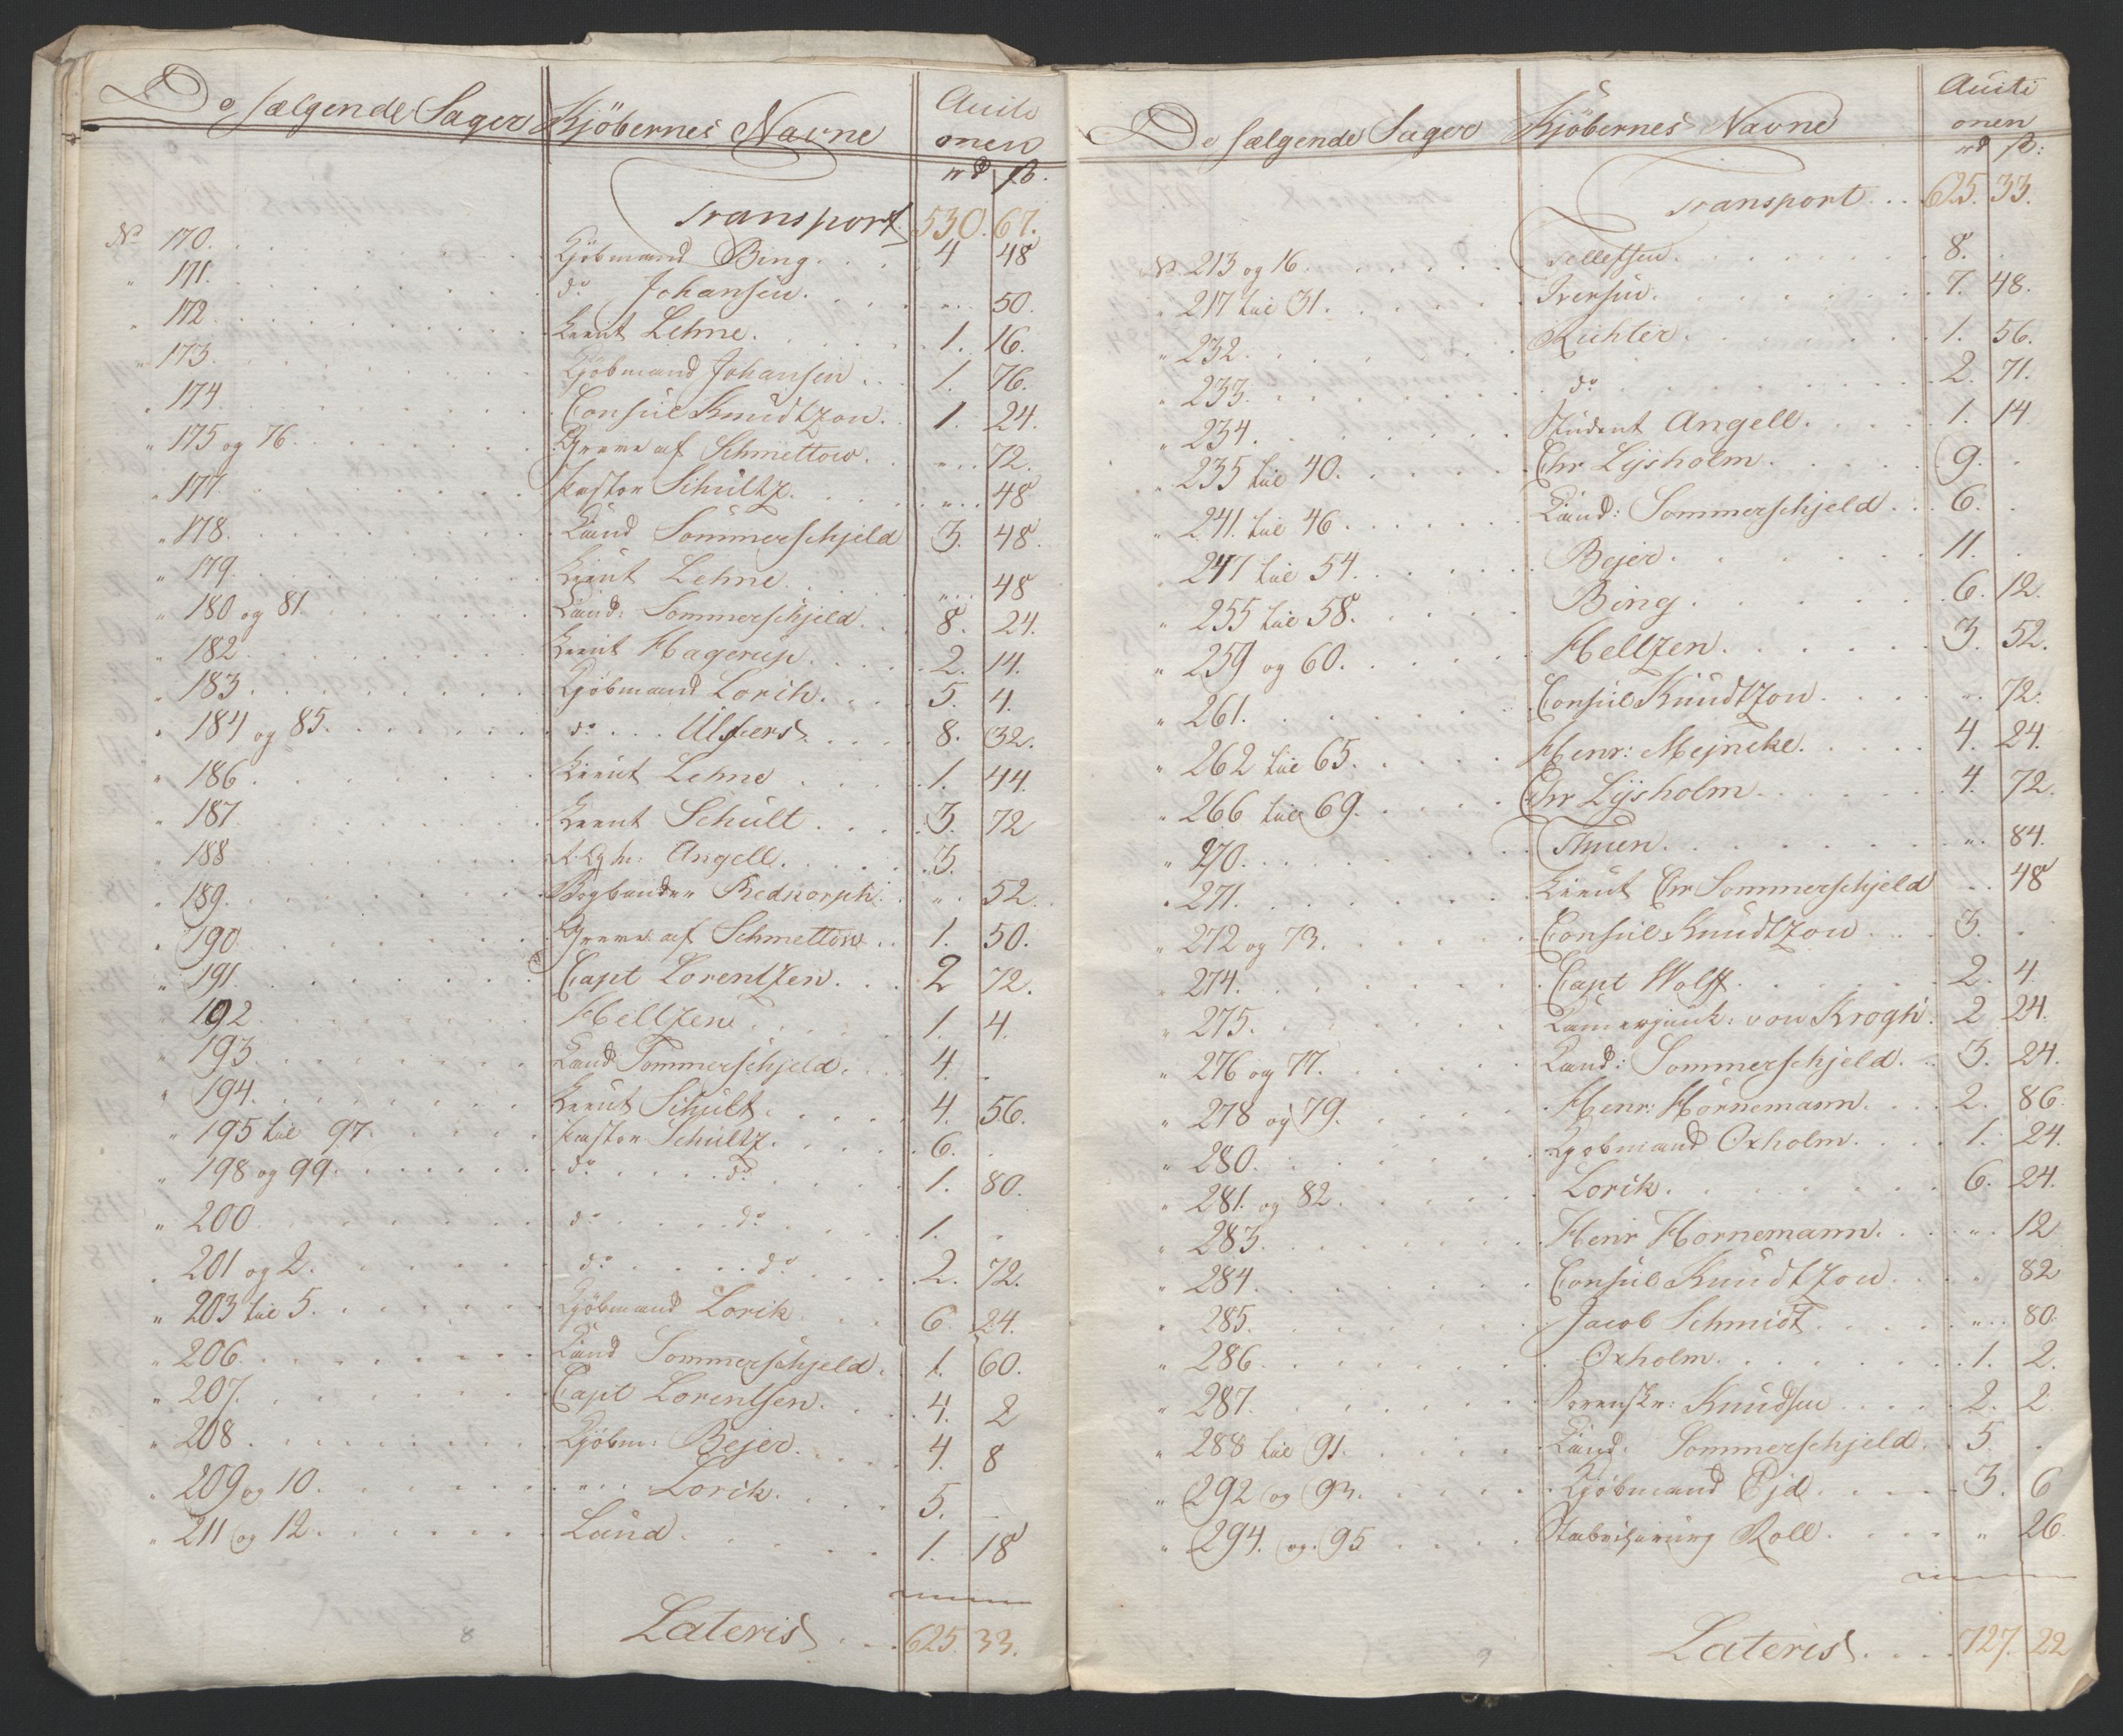 De sælgende Sager Kjöbernes Navne Aucti
onen
rd ß.
Transport 530. 67.
No 170. Kjöbmand Bing. 4 48
" 171. do Johansen. " 50.
" 172. Lieut Lehne. 1. 16.
" 173. Kjöbmand Johansen 1. 76.
" 174. Consul Knudtzon. 1. 24.
" 175 og 76. Greve af Schmettow. " 72.
" 177 Pastor Schultz. " 48
" 178. Cand Sommerschjeld 3. 48.
" 179. Lieut Lehne " 48
" 180 og 81. Cand: Sommerschjeld. 8. 24.
" 182 Lieut Hagerup. 2. 14.
" 183. Kjöbmand Lorik. 5. 4.
" 184 og 85. do Ulfers 8. 32.
" 186. Lieut Lehne 1. 44.
" 187. Lieut Schult 3. 72
" 188 Angell. 3.
" 189. Bogbinder Rednorph. " 52.
" 190. Greve af Schmettow. 1. 50.
" 191. Capt Lorentzen. 2 72.
" 192. Helltzen 1. 4.
" 193. Cand Sommerschjeld. 4. .
" 194. Lieut Schult. 4. 56.
" 195 til 97. Pastor Schultz. 6. .
" 198 og 99. do do 1. 80.
" 200. do do 1. .
" 201 og 2. do do 2. 72.
" 203 til 5. Kjöbmand Lorik 6. 24.
" 206. Cand Sommerschjeld. 1. 60.
" 207. Capt Lorentsen. 4. 2
" 208 Kjöbm: Bejer. 4. 8
" 209 og 10. " Lorik. 5.
" 211 og 12. Lund. 1. 18
Lateris 625. 33.
8
De sælgende Sager Kjöbernes Navne Aucti
onen
rd ß:
Transport 625. 33.
No. 213 og 16. Tellefsen. 8. .
" 217 til 31. Iversen. 7. 48.
" 232. Richter. 1. 56.
" 233. do 2. 71.
" 234. Student Angell. 1. 14.
" 235 til 40. Chr Lysholm. 9. .
" 241. til 46. Cand: Sommerschjeld. 6. .
" 247 til 54. Bejer. 11. .
" 255 til 58. Bing. 6. 12.
" 259 og 60. Helltzen. 3. 52.
" 261. Consul Knudtzon. " 72.
" 262 til 65. Henr: Mejncke. 4. 24.
" 266 til 69. Chr Lysholm 4. 72.
" 270. Thuen. " 84.
" 271. Lieut Chr Sommerschjeld 48
" 272 og 73. Consul Knudtzon 3. .
" 274. Capt Wolff. 2. 4.
" 275. Kamerjunk: von Krogh. 2 24.
" 276 og 77. Cand: Sommerschjeld. 3. 24.
" 278 og 79. Henr: Hornemann. 2. 86.
" 280. Kjöbmand Oxholm. 1. 24.
" 281. og 82. Lorik. 6. 24.
" 283. Henr Hornemann. " 12
" 284. Consul Knudtzon. " 82
" 285. Jacob Schmidt " 80.
" 286. Oxholm. 1. 2.
" 287. Knudsen 2. 2.
" 288 til 91. Cand. Sommerschjeld. 5 .
" 292 og 93. Kjöbmand Ejd. 3. 6
" 294. og. 95 Roll. " 26.
Lateris. 727. 22
9